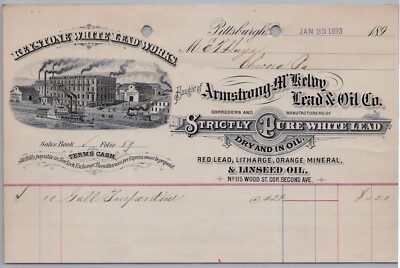 Pittsburgh, JAN 23 1893 189
KEYSTONE WHITE LEAD WORKS.
Bought of Armstrong, McKelvy
Lead & Oil Co.
CORRODERS AND MANUFACTURERS OF
STRICTLY PURE WHITE LEAD
DRY AND IN OIL
RED LEAD, LITHARGE, ORANGE MINERAL,
& LINSEED OIL.
No 115 WOOD ST. COR. SECOND AVE.
Sales Book Folio 19
TERMS CASH.
All Bills payable in New York Exchange. Remittances per Express must be prepaid
10 Gall Turpentine 42¢ 4 20